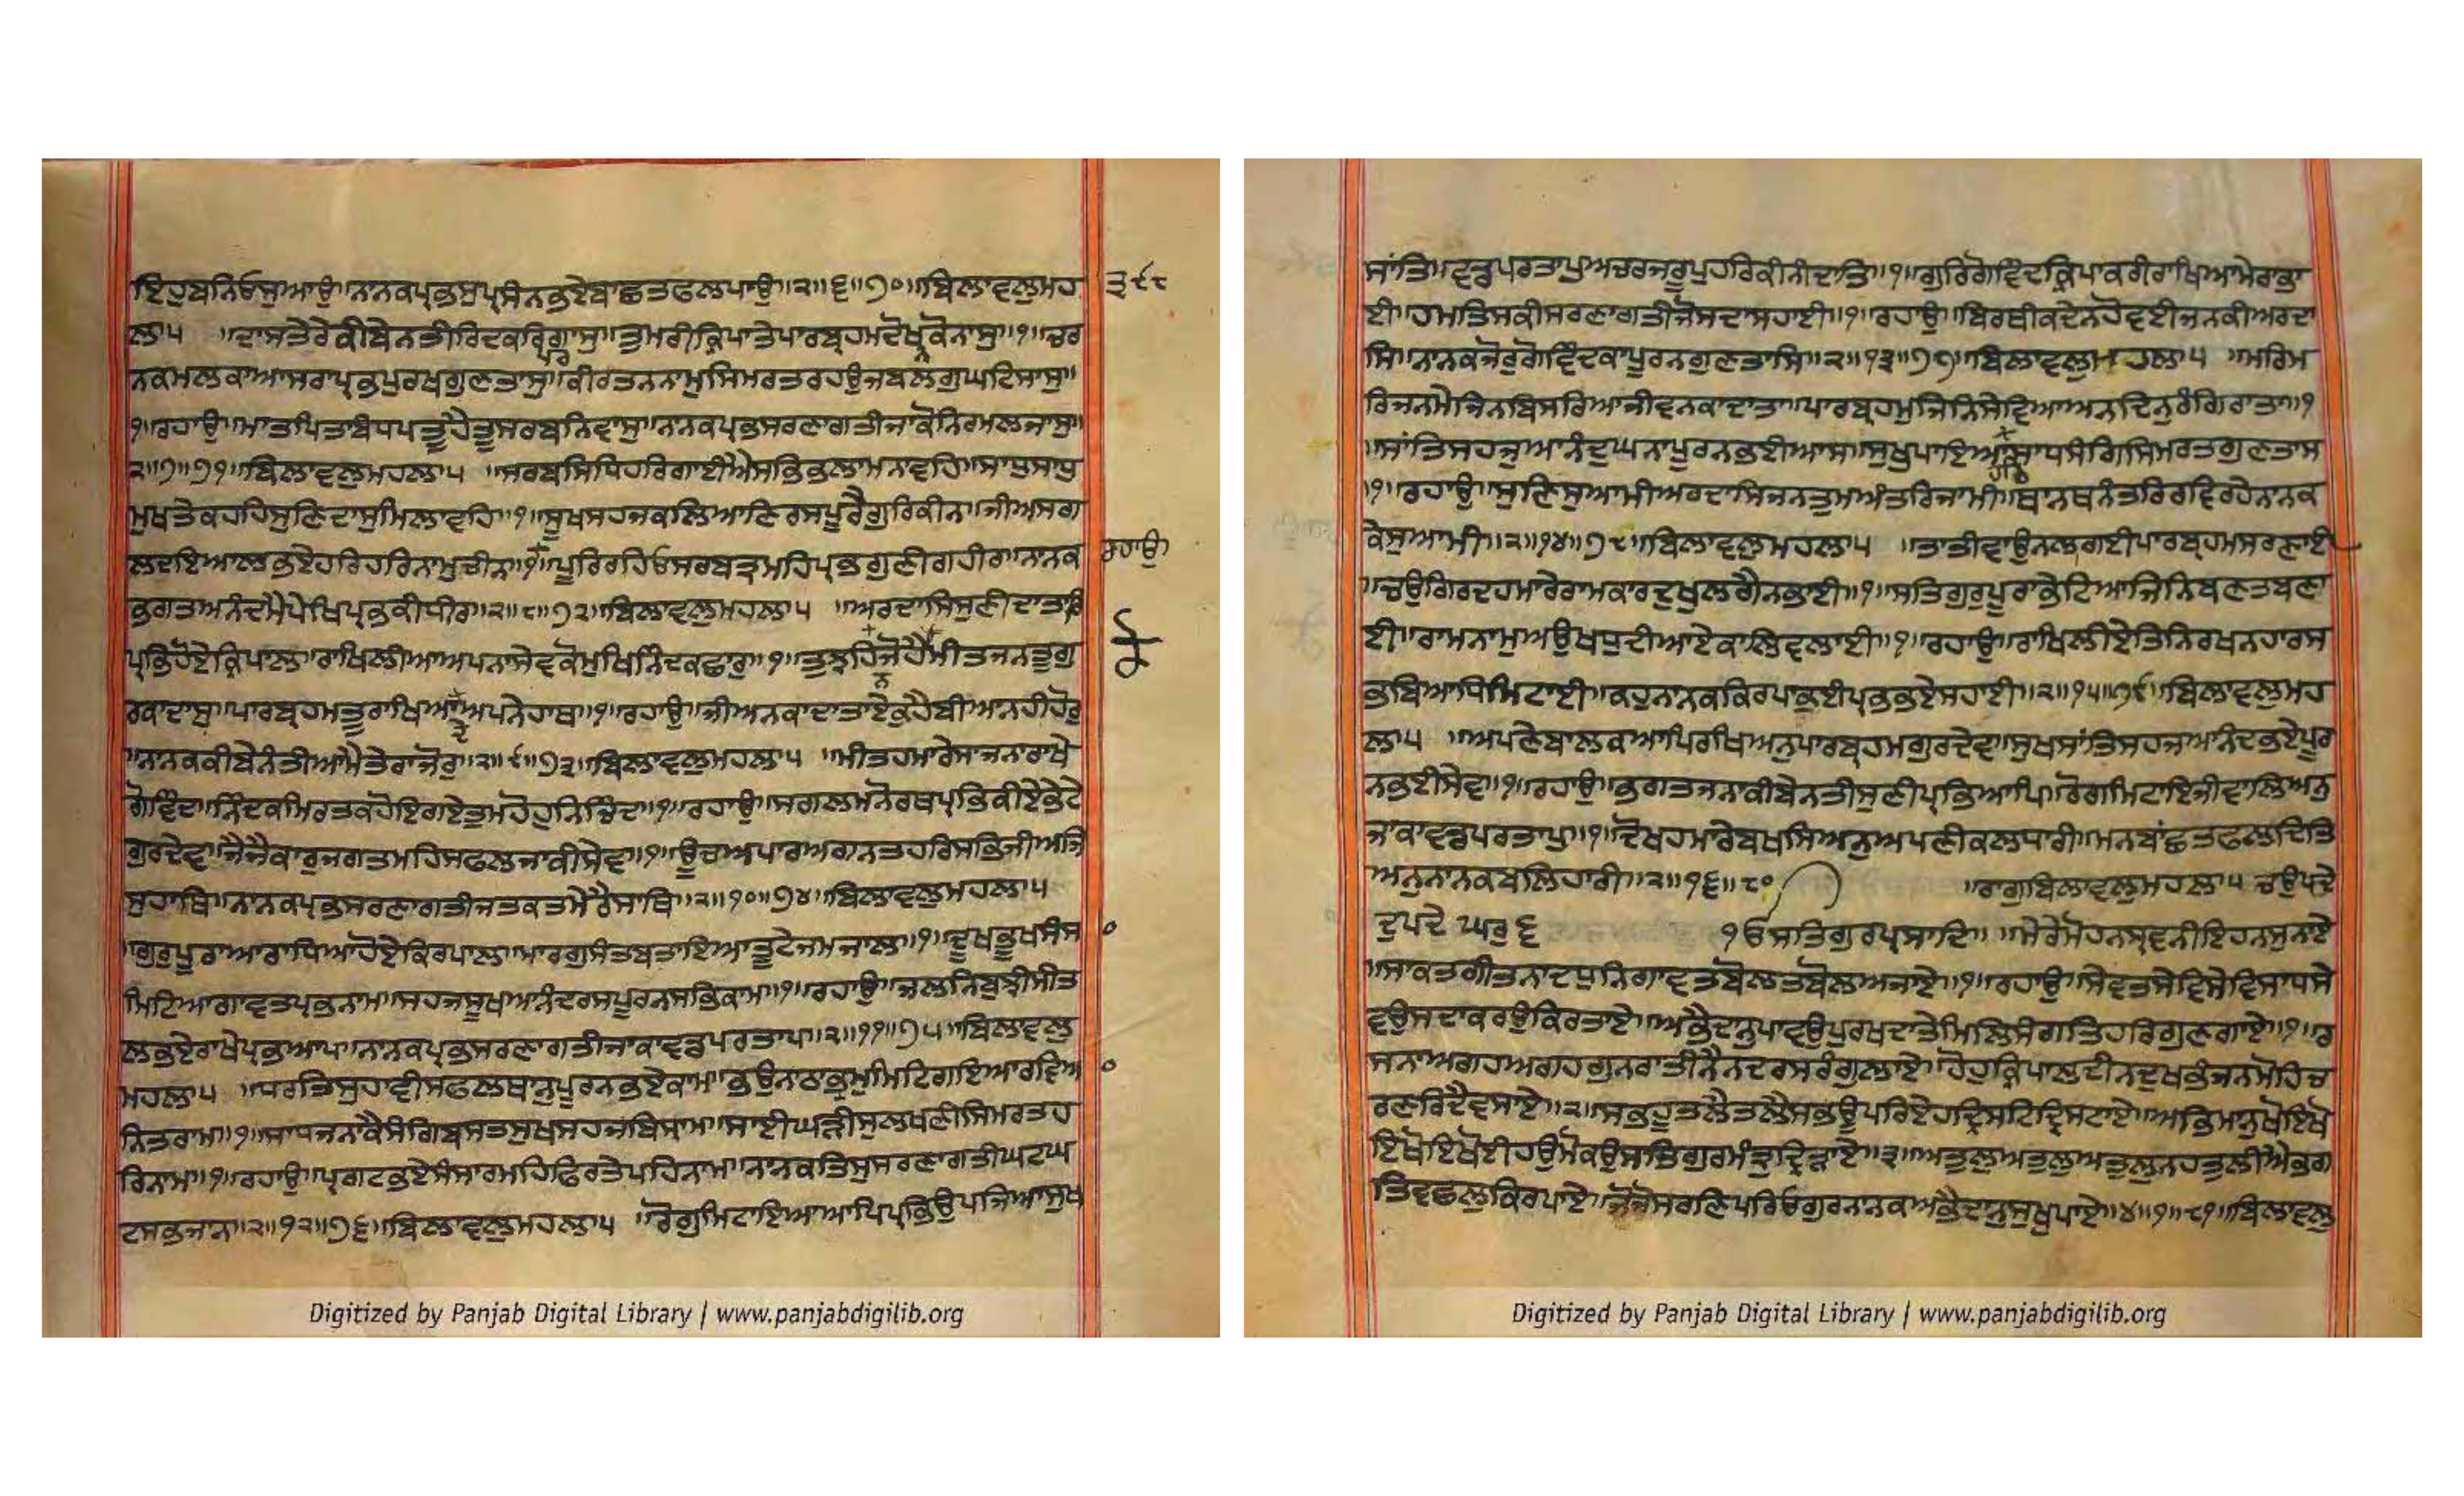 ਇਹੁਬਨਿਓਸੁਆਉ॥ਨਾਨਕਪ੍ਰਭਸੁਪ੍ਰਸੰਨਭਏਬਾਛਤਫਲਪਾਉ॥੨॥੬॥੭੦॥ਬਿਲਾਵਲੁਮਹ
੩੯੮
ਲਾ੫ ॥ਦਾਸਤੇਰੇਕੀਬੇਨਤੀਰਿਦਕਰਿਪ੍ਰਗਾਸੁ॥ਤੁਮਰੀਕ੍ਰਿਪਾਤੇਪਾਰਬ੍ਰਹਮਦੋਖਨਕੋਨਾਸੁ॥੧॥ਚਰ
ਨਕਮਲਕਾਆਸਰਾਪ੍ਰਭਪੁਰਖਗੁਣਤਾਸੁ॥ਕੀਰਤਨਨਾਮੁਸਿਮਰਤਰਹਉਜਬਲਗੁਘਟਿਸਾਸੁ॥
੧॥ਰਹਾਉ॥ਮਾਤਪਿਤਾਬੰਧਪਤੂਹੈਤੂਸਰਬਨਿਵਾਸੁ॥ਨਾਨਕਪ੍ਰਭਸਰਣਾਗਤੀਜਾਕੋਨਿਰਮਲਜਾਸੁ॥
੨॥੭॥੭੧॥ਬਿਲਾਵਲੁਮਹਲਾ੫ ॥ਸਰਬਸਿਧਿਹਰਿਗਾਈਐਸਭਿਭਲਾਮਨਾਵਹਿ॥ਸਾਧੁਸਾਧੁ
ਮੁਖਤੇਕਹਹਿਸੁਣਿਦਾਸੁਮਿਲਾਵਹਿ॥੧॥ਸੂਖਸਹਜਕਲਿਆਣਿਰਸਪੂਰੈਗੁਰਿਕੀਨਾ॥ਜੀਅਸਗ
ਲਦਇਆਲਭਏਹਰਿਹਰਿਨਾਮੁਚੀਨਾ॥੧॥ਪੂਰਿਰਹਿਓਸਰਬਤ੍ਰਮਹਿਪ੍ਰਭਗੁਣੀਗਹੀਰ॥ਨਾਨਕ
ਰਹਾਉ
ਭਗਤਅਨੰਦਮੈਪੇਖਿਪ੍ਰਭਕੀਧੀਰ॥੨॥੮॥੭੨॥ਬਿਲਾਵਲੁਮਹਲਾ੫ ॥ਅਰਦਾਸਿਸੁਣੀਦਾਤਾਰਿ
ਪ੍ਰਭਿਹੋਏਕ੍ਰਿਪਾਲ॥ਰਾਖਿਲੀਆਅਪਨਾਸੇਵਕੋਮੁਖਿਨਿੰਦਕਛਾਰੁ॥੧॥ਤੁਝਹਿਨਜੋਹੈਮੀਤਜਨਤੂਗੁ
ਰਕਾਦਾਸੁ॥ਪਾਰਬ੍ਰਹਮਤੂਰਾਖਿਆਦੇਅਪਨੇਹਾਥ॥੧॥ਰਹਾਉ॥ਜੀਅਨਕਾਦਾਤਾਏਕੁਹੈਬੀਆਨਹੀਹੋਰੁ
॥ਨਾਨਕਕੀਬੇਨੰਤੀਆਮੈਤੇਰਾਜੋਰੁ॥੨॥੯॥੭੩॥ਬਿਲਾਵਲੁਮਹਲਾ੫ ॥ਮੀਤਹਮਾਰੇਸਾਜਨਾਰਾਖੇ
ਗੋਵਿੰਦ॥ਨਿੰਦਕਮਿਰਤਕਹੋਇਗਏਤੁਮਹੋਹੁਨਿਚਿੰਦ॥੧॥ਰਹਾਉ॥ਸਗਲਮਨੋਰਥਪ੍ਰਭਿਕੀਏਭੇਟੇ
ਗੁਰਦੇਵ॥ਜੈਜੈਕਾਰੁਜਗਤਮਹਿਸਫਲਜਾਕੀਸੇਵ॥੧॥ਊਚਅਪਾਰਅਗਨਤਹਰਿਸਭਿਜੀਅਜਿ
ਸੁਹਾਥਿ॥ਨਾਨਕਪ੍ਰਭਸਰਣਾਗਤੀਜਤਕਤਮੇਰੈਸਾਥਿ॥੨॥੧੦॥੭੪॥ਬਿਲਾਵਲੁਮਹਲਾ੫
॥ਗੁਰੁਪੂਰਾਆਰਾਧਿਆਹੋਏਕਿਰਪਾਲ॥ਮਾਰਗੁਸੰਤਬਤਾਇਆਤੂਟੇਜਮਜਾਲ॥੧॥ਦੂਖਭੂਖਸੰਸ
ਮਿਟਿਆਗਾਵਤਪ੍ਰਭਨਾਮ॥ਸਹਜਸੂਖਆਨੰਦਰਸਪੂਰਨਸਭਿਕਾਮ॥੧॥ਰਹਾਉ॥ਜਲਨਿਬੁਝੀਸੀਤ
ਲਭਏਰਾਖੇਪ੍ਰਭਆਪ॥ਨਾਨਕਪ੍ਰਭਸਰਣਾਗਤੀਜਾਕਾਵਡਪਰਤਾਪ॥੨॥੧੧॥੭੫॥ਬਿਲਾਵਲੁ
ਮਹਲਾ੫ ॥ਧਰਤਿਸੁਹਾਵੀਸਫਲਥਾਨੁਪੂਰਨਭਏਕਾਮ॥ਭਉਨਾਠਾਭ੍ਰਮੁਮਿਟਿਗਇਆਰਵਿਆ
ਨਿਤਰਾਮ॥੧॥ਸਾਧਜਨਾਕੈਸੰਗਿਬਸਤਸੁਖਸਹਜਬਿਸ੍ਰਾਮ॥ਸਾਈਘੜੀਸੁਲਖਣੀਸਿਮਰਤਹ
ਰਿਨਾਮ॥੧॥ਰਹਾਉ॥ਪ੍ਰਗਟਭਏਸੰਸਾਰਮਹਿਫਿਰਤੇਪਹਿਨਾਮ॥ਨਾਨਕਤਿਸੁਸਰਣਾਗਤੀਘਟਘ
ਟਸਭਜਾਨ॥੨॥੧੨॥੭੬॥ਬਿਲਾਵਲੁਮਹਲਾ੫ ॥ਰੋਗੁਮਿਟਾਇਆਆਪਿਪ੍ਰਭਿਉਪਜਿਆਸੁਖ
Digitized by Panjab Digital Library | www.panjabdigilib.org
ਸਾਂਤਿ॥ਵਡਪਰਤਾਪੁਅਚਰਜਰੂਪੁਹਰਿਕੀਨੀਦਾਤਿ॥੧॥ਗੁਰਿਗੋਵਿੰਦਕ੍ਰਿਪਾਕਰੀਰਾਖਿਆਮੇਰਾਭਾ
ਈ॥ਹਮਤਿਸਕੀਸਰਣਾਗਤੀਜੋਸਦਾਸਹਾਈ॥੧॥ਰਹਾਉ॥ਬਿਰਥੀਕਦੇਨਹੋਵਈਜਨਕੀਅਰਦਾ
ਸਿ॥ਨਾਨਕਜੋਰੁਗੋਵਿੰਦਕਾਪੂਰਨਗੁਣਤਾਸਿ॥੨॥੧੩॥੭੭॥ਬਿਲਾਵਲੁਮਹਲਾ੫ ॥ਮਰਿਮ
ਰਿਜਨਮੇਜਿਨਬਿਸਰਿਆਜੀਵਨਕਾਦਾਤਾ॥ਪਾਰਬ੍ਰਹਮੁਜਿਨਿਸੇਵਿਆਅਨਦਿਨੁਰੰਗਿਰਾਤਾ॥੧
॥ਸਾਂਤਿਸਹਜੁਆਨੰਦੁਘਨਾਪੂਰਨਭਈਆਸ॥ਸੁਖੁਪਾਇਆਹਰਿਸਾਧਸੰਗਿਸਿਮਰਤਗੁਣਤਾਸ
॥੧॥ਰਹਾਉ॥ਸੁਣਿਸੁਆਮੀਅਰਦਾਸਿਜਨਤੁਮਅੰਤਰਿਜਾਮੀ॥ਥਾਨਥਨੰਤਰਿਰਵਿਰਹੇਨਾਨਕ
ਕੇਸੁਆਮੀ॥੨॥੧੪॥੭੮॥ਬਿਲਾਵਲੁਮਹਲਾ੫ ॥ਤਾਤੀਵਾਉਨਲਗਈਪਾਰਬ੍ਰਹਮਸਰਣਾਈ
॥ਚਉਗਿਰਦਹਮਾਰੇਰਾਮਕਾਰਦੁਖੁਲਗੈਨਭਾਈ॥੧॥ਸਤਿਗੁਰੁਪੂਰਾਭੇਟਿਆਜਿਨਿਬਣਤਬਣਾ
ਈ॥ਰਾਮਨਾਮੁਅਉਖਧੁਦੀਆਏਕਾਲਿਵਲਾਈ॥੧॥ਰਹਾਉ॥ਰਾਖਿਲੀਏਤਿਨਿਰਖਨਹਾਰਸ
ਭਬਿਆਧਿਮਿਟਾਈ॥ਕਹੁਨਾਨਕਕਿਰਪਾਭਈਪ੍ਰਭਭਏਸਹਾਈ॥੨॥੧੫॥੭੯॥ਬਿਲਾਵਲੁਮਹ
ਲਾ੫ ॥ਅਪਣੇਬਾਲਕਆਪਿਰਖਿਅਨੁਪਾਰਬ੍ਰਹਮਗੁਰਦੇਵ॥ਸੁਖਸਾਂਤਿਸਹਜਆਨੰਦਭਏਪੂਰ
ਨਭਈਸੇਵ॥੧॥ਰਹਾਉ॥ਭਗਤਜਨਾਕੀਬੇਨਤੀਸੁਣੀਪ੍ਰਭਿਆਪਿ॥ਰੋਗਮਿਟਾਇਜੀਵਾਲਿਅਨੁ
ਜਾਕਾਵਡਪਰਤਾਪੁ॥੧॥ਦੋਖਹਮਾਰੇਬਖਸਿਅਨੁਅਪਣੀਕਲਧਾਰੀ॥ਮਨਬਾਂਛਤਫਲਦਿਤਿ
ਅਨੁਨਾਨਕਬਲਿਹਾਰੀ॥੨॥੧੬॥੮੦ ॥ਰਾਗੁਬਿਲਾਵਲੁਮਹਲਾ੫ ਚਉਪਦੇ
ਦੁਪਦੇ ਘਰੁ੬ ੴਸਤਿਗੁਰਪ੍ਰਸਾਦਿ॥ ॥ਮੇਰੇਮੋਹਨਸ੍ਰਵਨੀਇਹਨਸੁਨਾਏ
॥ਸਾਕਤਗੀਤਨਾਦਧੁਨਿਗਾਵਤਬੋਲਤਬੋਲਅਜਾਏ॥੧॥ਰਹਾਉ॥ਸੇਵਤਸੇਵਿਸੇਵਿਸਾਧਸੇ
ਵਉਸਦਾਕਰਉਕਿਰਤਾਏ॥ਅਭੈਦਾਨੁਪਾਵਉਪੁਰਖਦਾਤੇਮਿਲਿਸੰਗਤਿਹਰਿਗੁਣਗਾਏ॥੧॥ਰ
ਸਨਾਅਗਹਅਗਹਗੁਨਰਾਤੀਨੈਨਦਰਸਰੰਗੁਲਾਏ॥ਹੋਹੁਕ੍ਰਿਪਾਲਦੀਨਦੁਖਭੰਜਨਮੋਹਿਚ
ਰਣਰਿਦੈਵਸਾਏ॥੨॥ਸਭਹੂਤਲੈਤਲੈਸਭਊਪਰਿਏਹਦ੍ਰਿਸਟਿਦ੍ਰਿਸਟਾਏ॥ਅਭਿਮਾਨੁਖੋਇਖੋ
ਇਖੋਇਖੋਈਹਉਮੋਕਉਸਤਿਗੁਰਮੰਤ੍ਰੁਦ੍ਰਿੜਾਏ॥੩॥ਅਤੁਲੁਅਤੁਲੁਅਤੁਲੁਨਹਤੁਲੀਐਭਗ
ਤਿਵਛਲੁਕਿਰਪਾਏ॥ਜੋਜੋਸਰਣਿਪਰਿਓਗੁਰਨਾਨਕਅਭੈਦਾਨੁਸੁਖੁਪਾਏ॥੪॥੧॥੮੧॥ਬਿਲਾਵਲੁ
Digitized by Panjab Digital Library | www.panjabdigilib.org